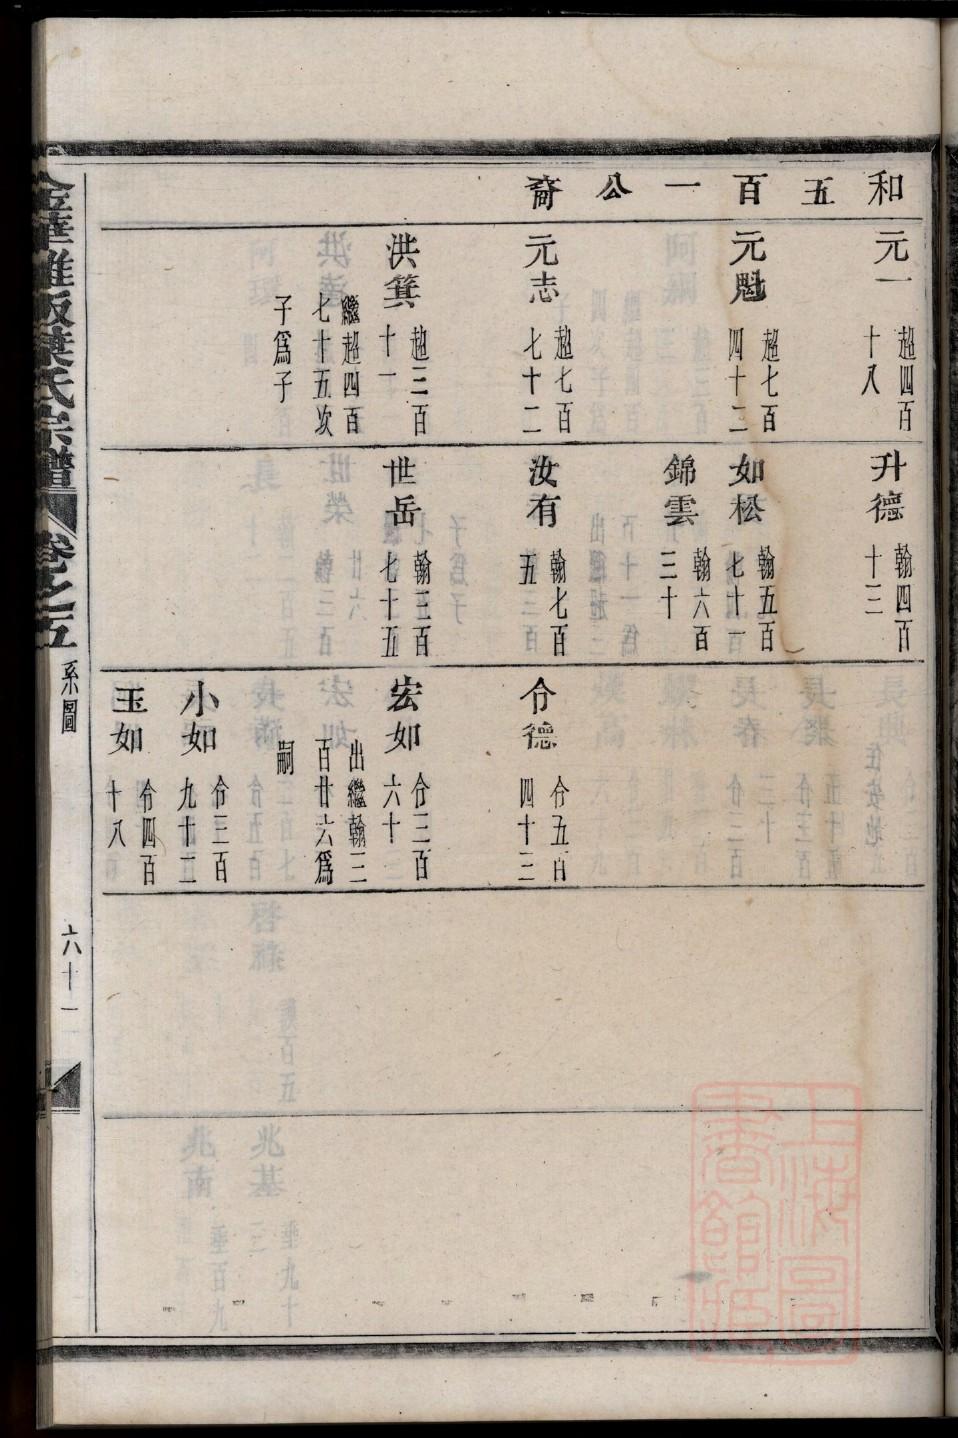 和五百一公裔
元一 超四百十八
元魁 超七百四十二
元志 超七百七十二
洪箕 超三百十一
繼超四百七十五次子爲子
升德 翰四百十三
如松 翰五百七十一
錦雲 翰六百三十
汝有 翰七百五
世岳 翰三百七十五
令德 令五百四十三
宏如 令三百六十
出繼翰三百廿六爲嗣
小如 令三百九十二
玉如 令四百十八
葉氏宗譜
卷之五
系圖
六十一
上海圖書館藏